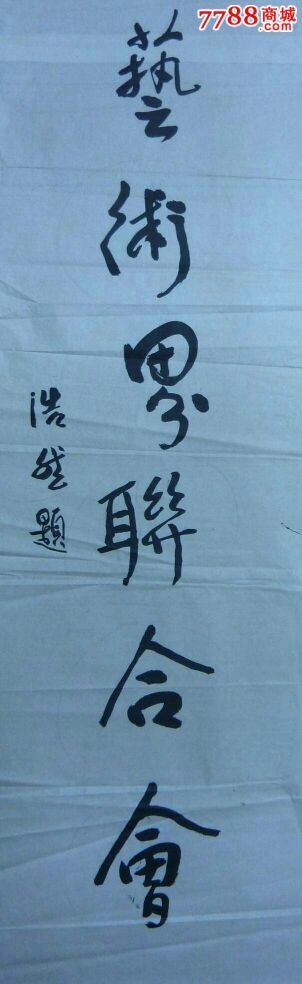 7788商城
藝術界聯合會
浩然題